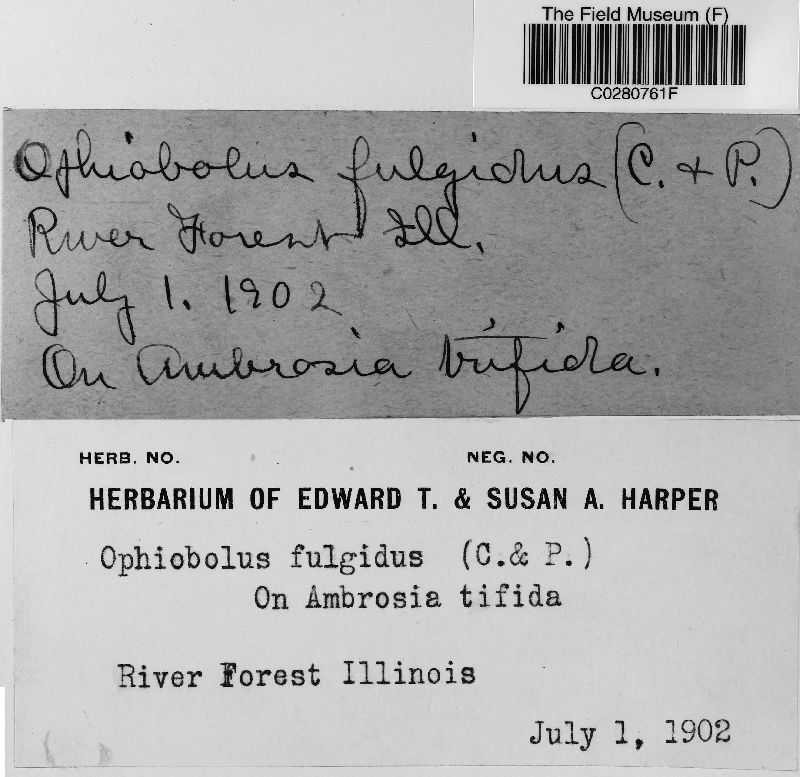 The Field Museum (F)
C0280761F
Ophiobolus fulgidus (C. & P.)
River Forest Ill.
July 1. 1902
On Ambrosia trifida.
HERB. NO. NEG. NO.
HERBARIUM OF EDWARD T. & SUSAN A. HARPER
Ophiobolus fulgidus (C.& P.)
On Ambrosia tifida
River Forest Illinois
July 1, 1902